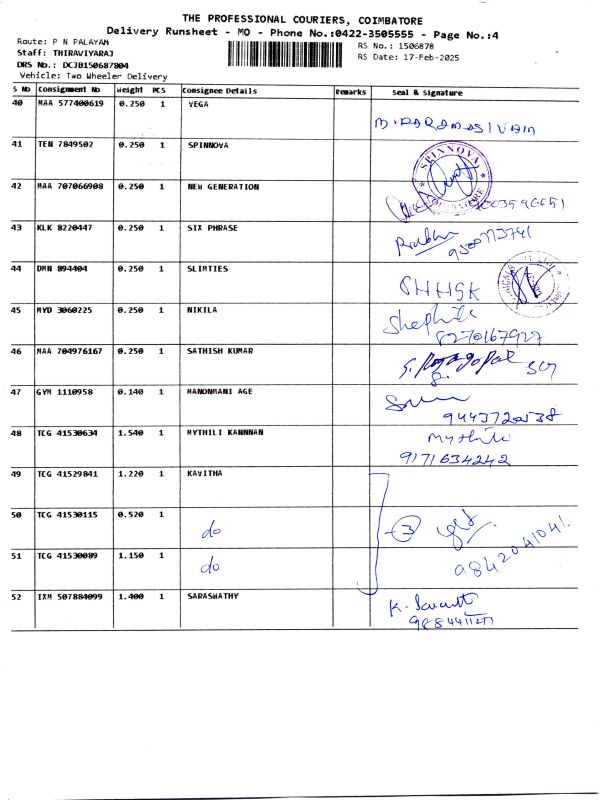 THE PROFESSIONAL COURIERS, COIMBATORE
Delivery Runsheet - MO - Phone No.:0422-3505555 - Page No.:4
Route: P N PALAYAM
Staff: THIRAVIYARAJ
DRS No.: DCJB150687804
Vehicle: Two Wheeler Delivery
RS No.: 1506878
RS Date: 17-Feb-2025
S No Consignment No Weight PCS Consignee Details Remarks Seal & Signature
40 MAA 577400619 0.250 1 VEGA
M. PARAMASIVAM
41 TEN 7849502 0.250 1 SPINNOVA
SPINNOVA
42 MAA 707066908 0.250 1 NEW GENERATION
43 KLK 8220447 0.250 1 SIX PHRASE
Prabhu
9500773791
44 DMN 894404 0.250 1 SLIMTIES
45 MYD 3060225 0.250 1 NIKILA
8270167927
46 MAA 704976167 0.250 1 SATHISH KUMAR
S. Rajagopal
47 GYM 1110958 0.140 1 MANONMANI AGE
9443720538
48 TCG 41530634 1.540 1 MYTHILI KANNNAN
Mythili
9171634242
49 TCG 41529841 1.220 1 KAVITHA
50 TCG 41530115 0.520 1 do
3
51 TCG 41530089 1.150 1 do
9842041041
52 IXM 507884099 1.400 1 SARASHATHY